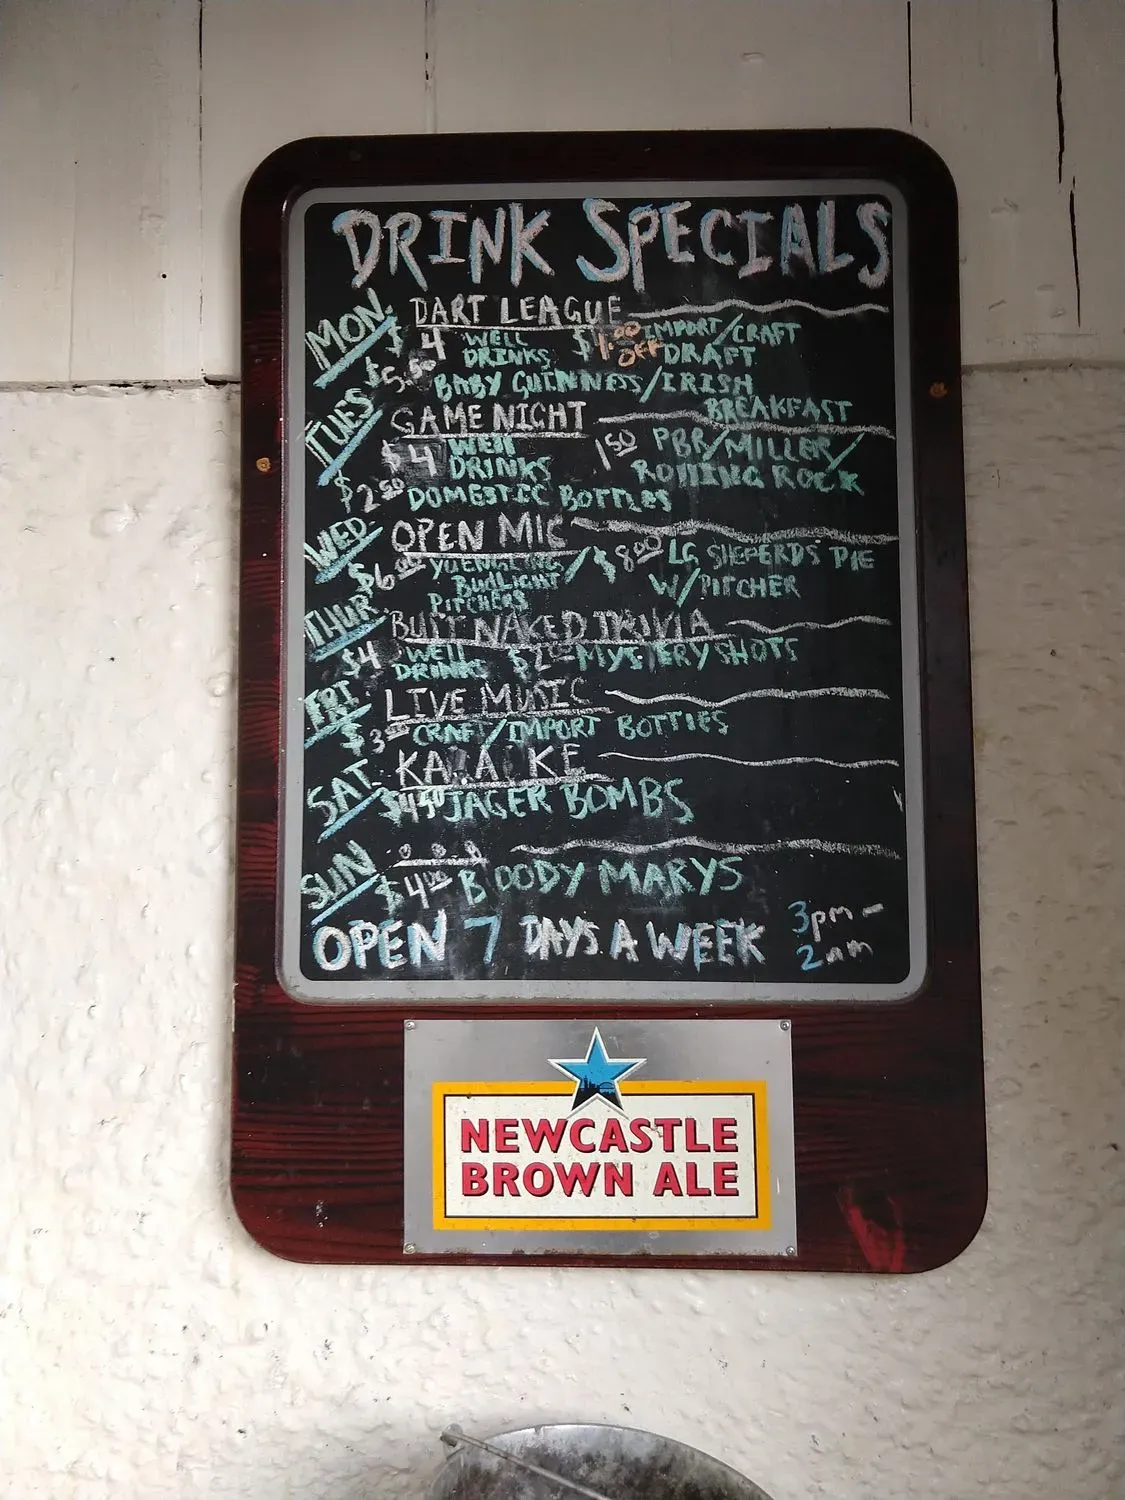 DRINK SPECIALS
MON. DART LEAGUE
$4 WELL DRINKS $1.00 OFF IMPORT/CRAFT DRAFT
$5.00 BABY GUINNESS/IRISH BREAKFAST
TUES GAME NIGHT
$4 WELL DRINKS 1.50 PBR/MILLER/ ROLLING ROCK
$2.50 DOMESTIC BOTTLES
WED. OPEN MIC
$6.00 YUENGLING BUDLIGHT PITCHERS / $8.00 LG SHEPERDS PIE W/PITCHER
THUR BUTT NAKED TRIVIA
$4 WELL DRINKS $2.00 MYSTERY SHOTS
FRI LIVE MUSIC
$3.00 CRAFT/IMPORT BOTTLES
SAT KARAOKE
$4.50 JAGER BOMBS
SUN
$4.00 BLOODY MARYS
OPEN 7 DAYS A WEEK 3pm-2am
NEWCASTLE
BROWN ALE